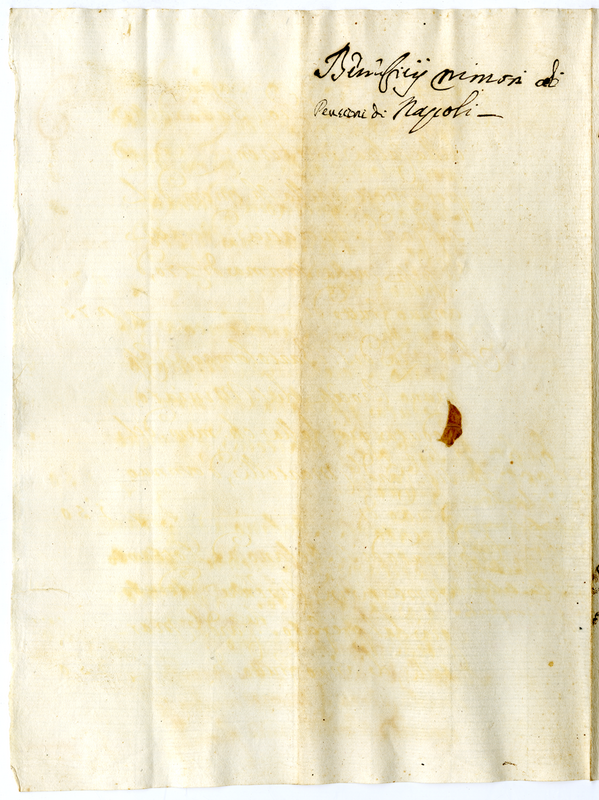 Beneficij minori di
Pensioni di Napoli —